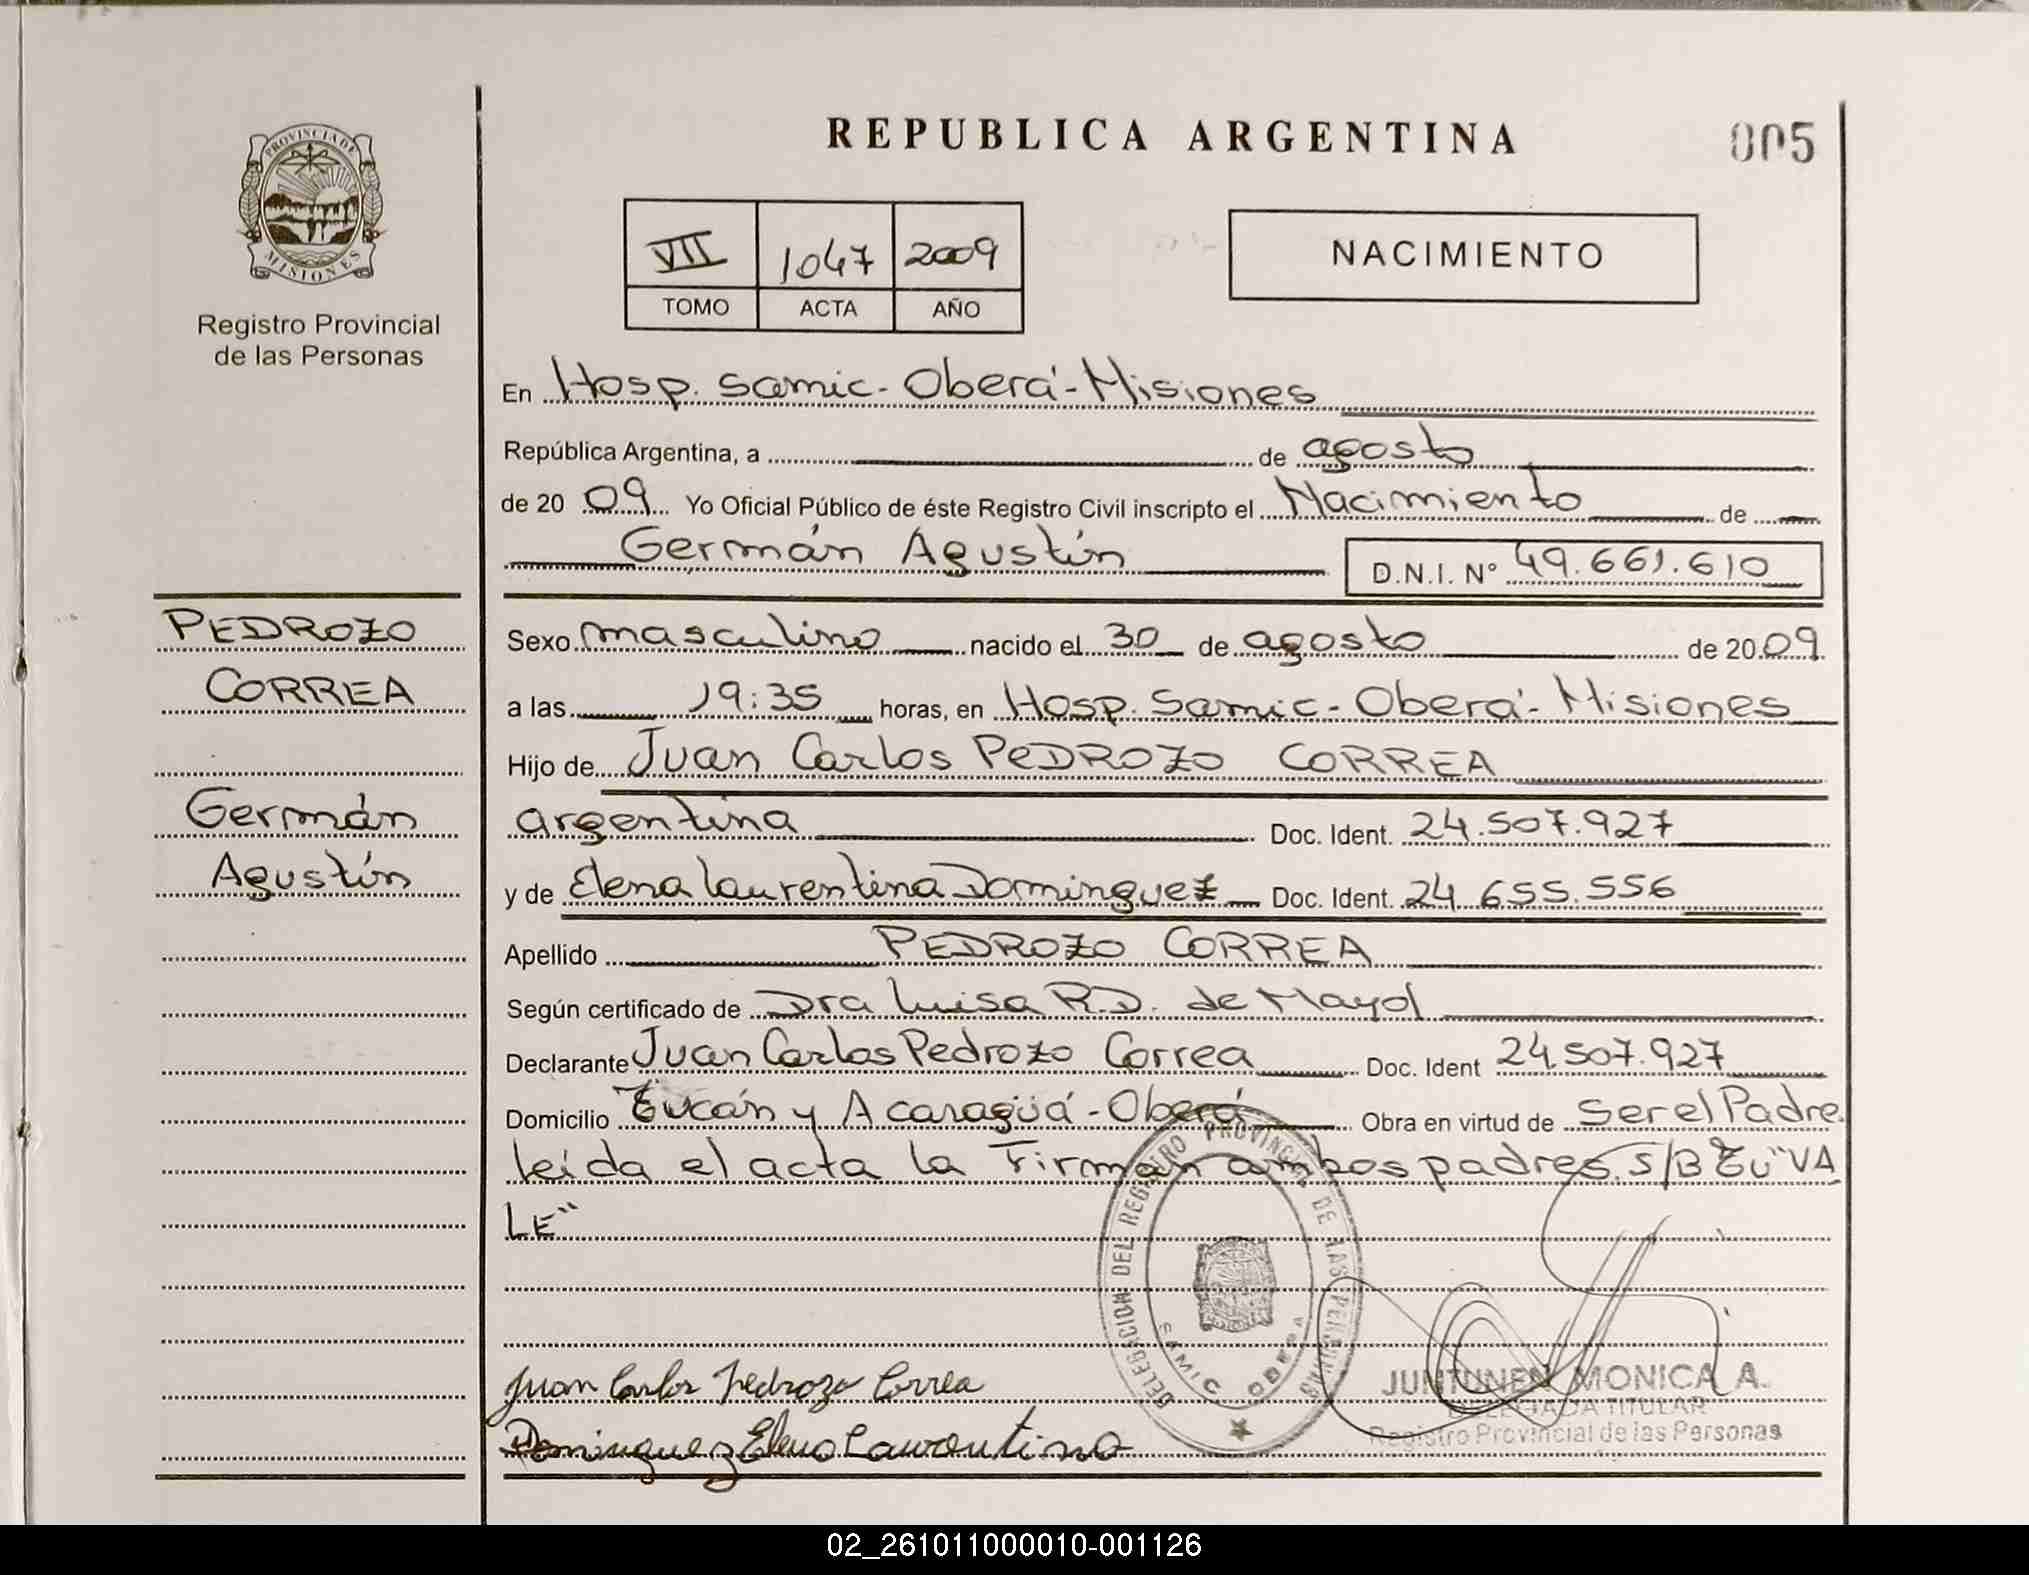 REPUBLICA ARGENTINA
005
PROVINCIA DE
MISIONES
Registro Provincial
de las Personas
VII 1047 2009
TOMO ACTA AÑO
NACIMIENTO
En Hosp. Samic - Oberá - Misiones
República Argentina, a de agosto
de 20 09 Yo Oficial Público de éste Registro Civil inscripto el Nacimiento de
Germán Agustín D.N.I. N° 49.661.610
PEDROZO
CORREA
Germán
Agustín
Sexo masculino nacido el 30 de agosto de 20 09
a las 19:35 horas, en Hosp. Samic - Oberá - Misiones
Hijo de Juan Carlos PEDROZO CORREA
argentina Doc. Ident. 24.507.927
y de Elena Laurentina Dominguez Doc. Ident. 24.655.556
Apellido PEDROZO CORREA
Según certificado de Dra Luisa R.D. de Mayol
Declarante Juan Carlos Pedrozo Correa Doc. Ident 24.507.927
Domicilio Tucán y Acaraguá - Oberá Obra en virtud de Ser el Padre.
leída el acta la Firman ambos padres. S/B Tu "VA
LE"
DELEGACION DEL REGISTRO PROVINCIAL DE LAS PERSONAS
SAMIC OBERA
Juan Carlos Pedrozo Correa
Dominguez Elena Laurentina
JUNTUNEN MONICA A.
DELEGADA TITULAR
Registro Provincial de las Personas
02_261011000010-001126